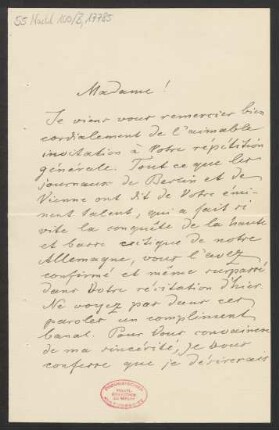 55 Nachl 100/B, 17785
Madame!
Je viens vous remercier bien
cordialement de l'aimable
invitation à Votre répétition
générale. Tout ce que les
journaux de Berlin et de
Vienne ont dit de Votre émi-
nent talent, qui a fait si
vite la conquête de la haute
et basse critique de notre
Allemagne, vous l'avez
confirmé et même surpassé
dans Votre récitation d'hier.
Ne voyez pas dans ces
paroles un compliment
banal. Pour Vous convaincre
de ma sincérité, je Vous
confesse que je désirerais